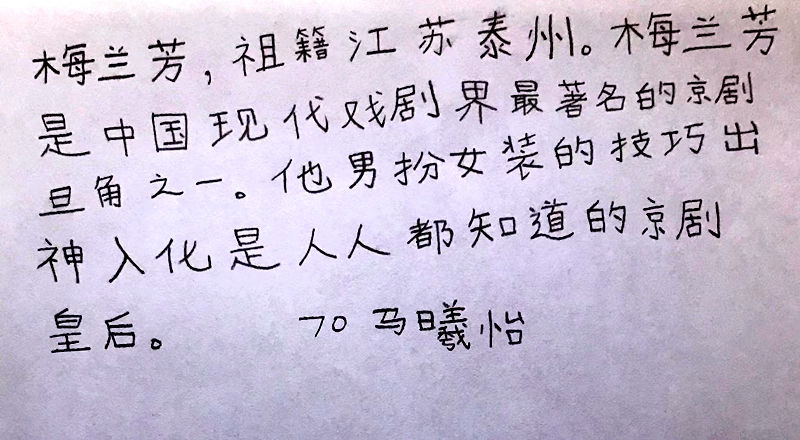 梅兰芳,祖籍江苏泰州。梅兰芳
是中国现代戏剧界最著名的京剧
旦角之一。他男扮女装的技巧出
神入化是人人都知道的京剧
皇后。 70 马曦怡